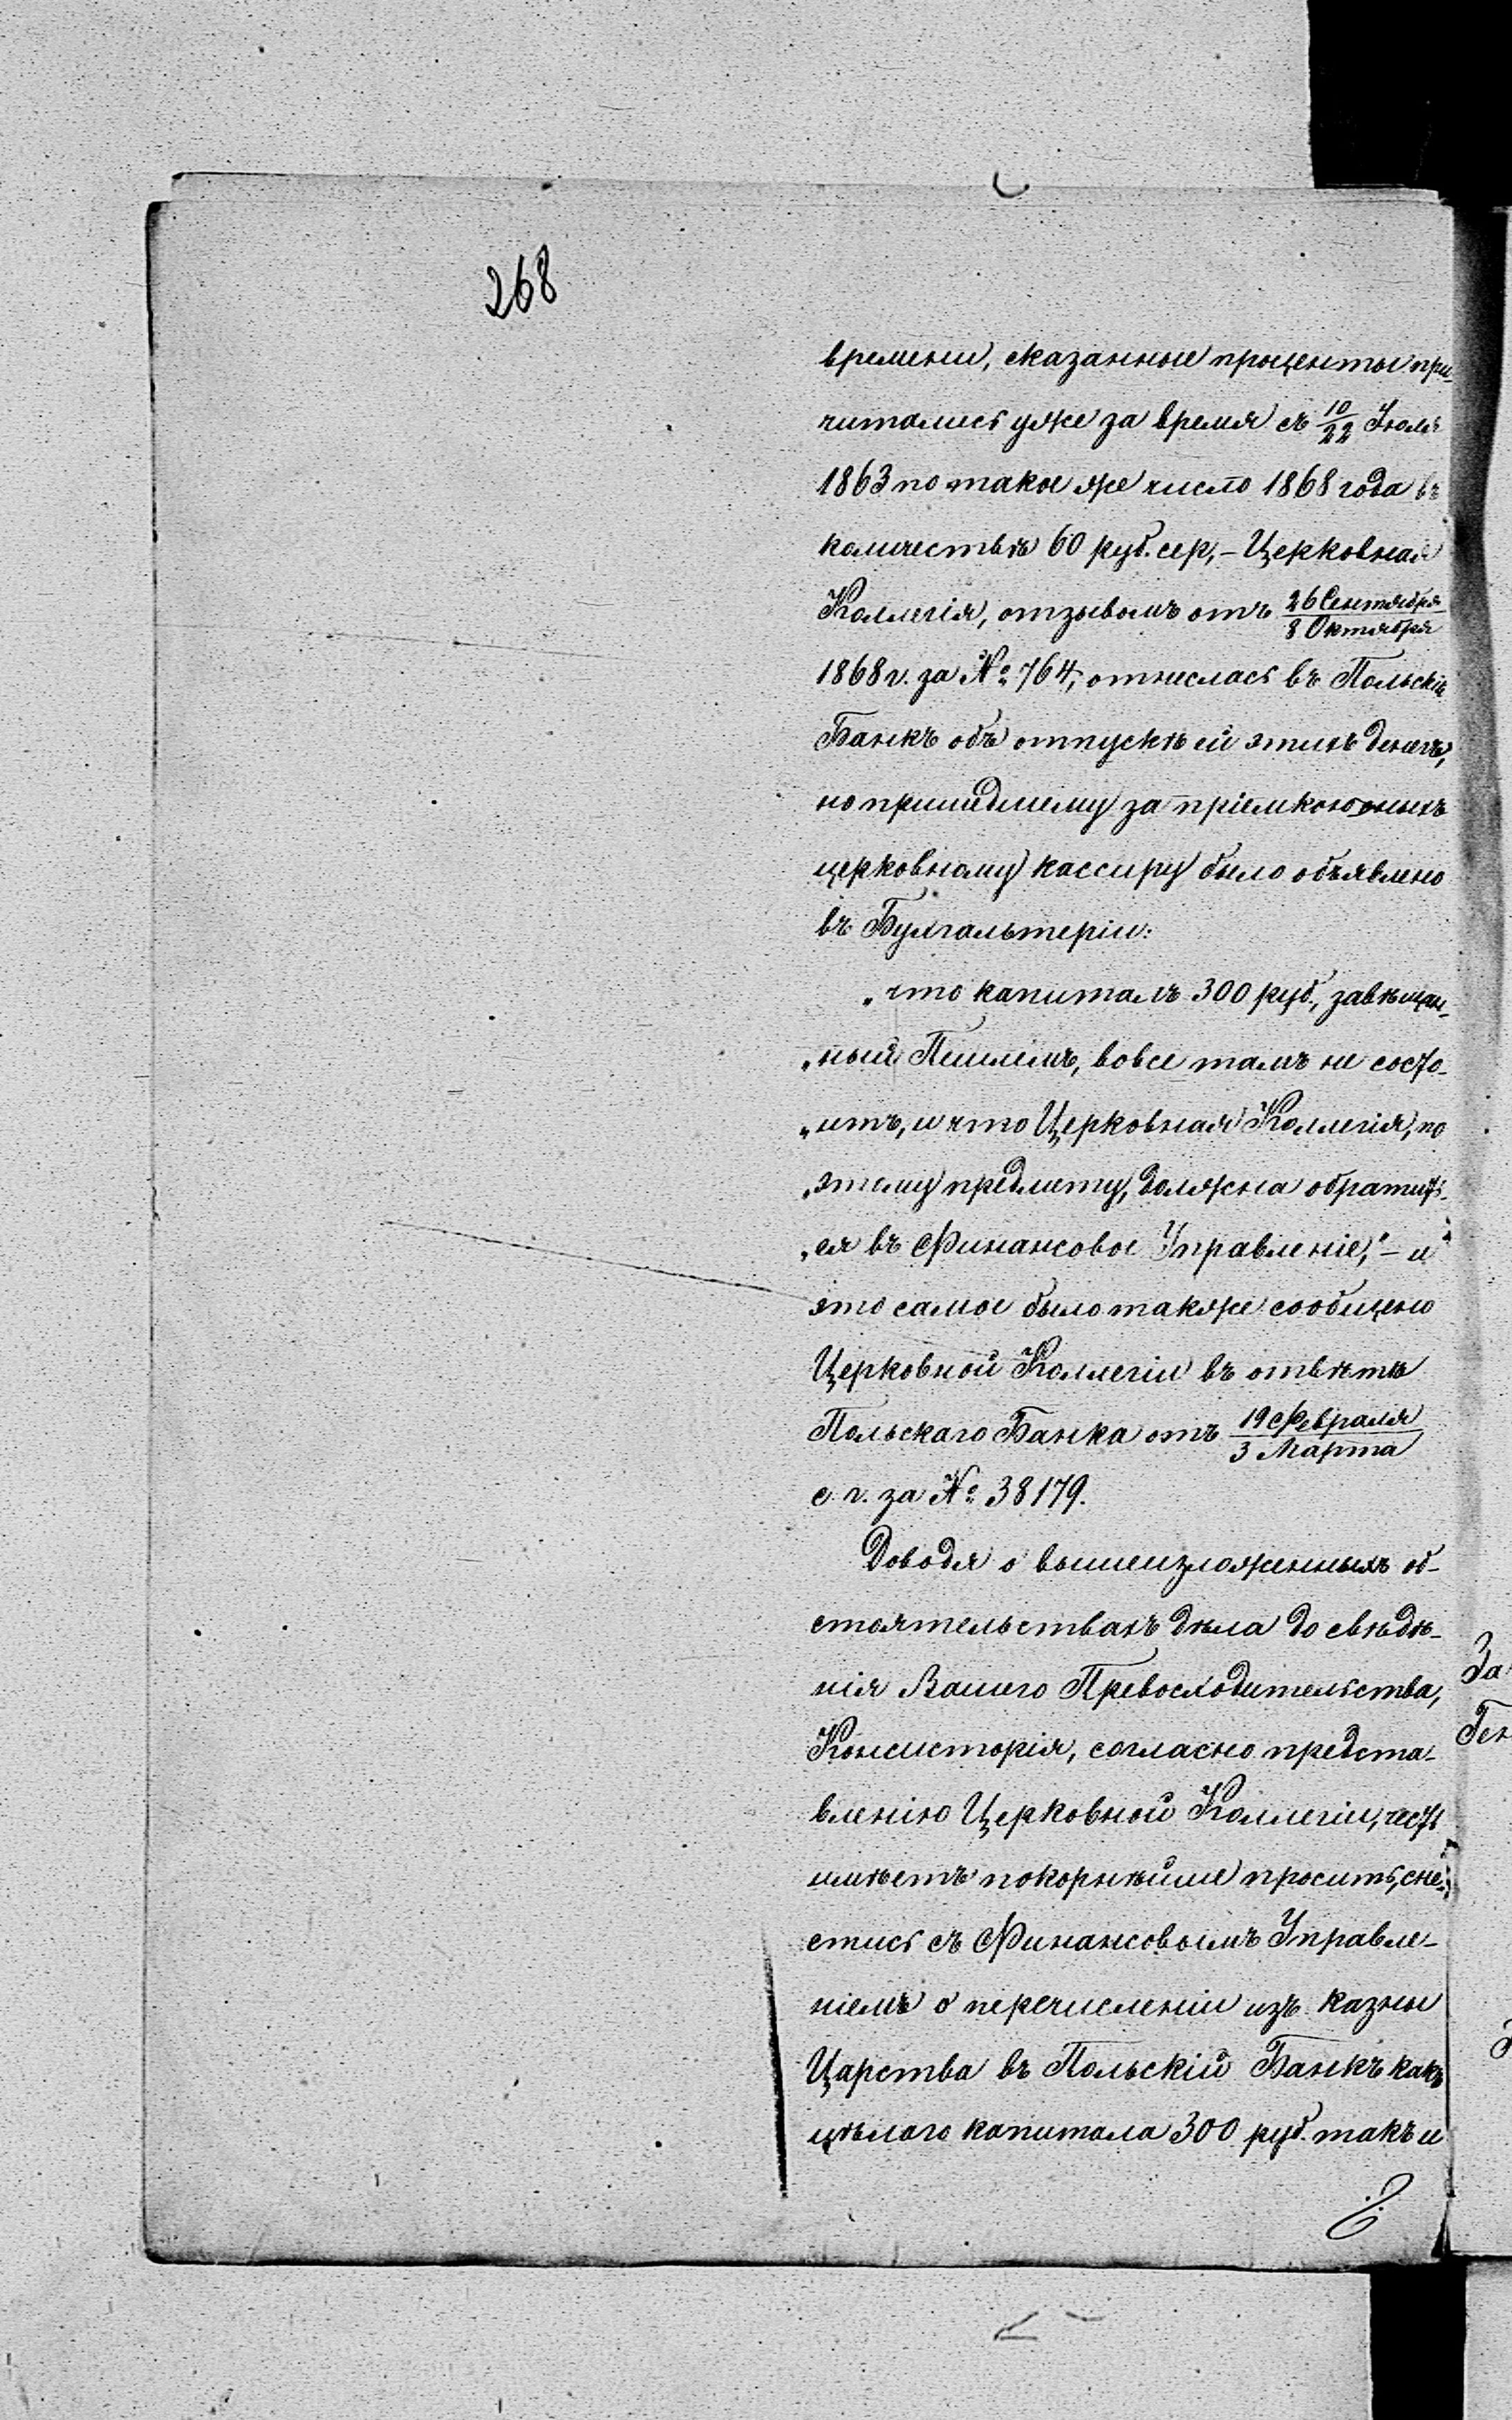 268
времени, сказанные проценты при-
читались уже за время съ 10/22 Іюля
1863 по такое же число 1868 года въ
количествѣ 60 руб. сер., – Церковная
Коллегія, отзывомъ отъ 26 Сентября/8 Октября
1868 г. за № 764, отнеслась въ Польскій
Банкъ объ отпускѣ ей этихъ денегъ,
но пришедшему за пріемкою оныхъ
церковному кассиру было объявлено
въ Бухгальтеріи:
„что капиталъ 300 руб., завѣщан-
„ный, вовсе тамъ не состо-
„итъ, и что Церковная Коллегія, по
„этому предмету, должна обратить-
„ся въ Финансовое Управленіе,“ – и
это самое было также сообщено
Церковной Коллегіи въ отвѣтѣ
Польскаго Банка отъ 19 Февраля/3 Марта
с. г. за № 38179.
Доводя о вышеизложенныхъ об-
стоятельствахъ дѣла до свѣдѣ-
нія Вашего Превосходительства,
Консисторія, согласно предста-
вленію Церковной Коллегіи, честь
имѣетъ покорнѣйше просить, сне-
стись съ Финансовымъ Управле-
ніемъ о перечисленіи изъ казны
Царства въ Польскій Банкъ какъ
цѣлаго капитала 300 руб. такъ и
За
Ген